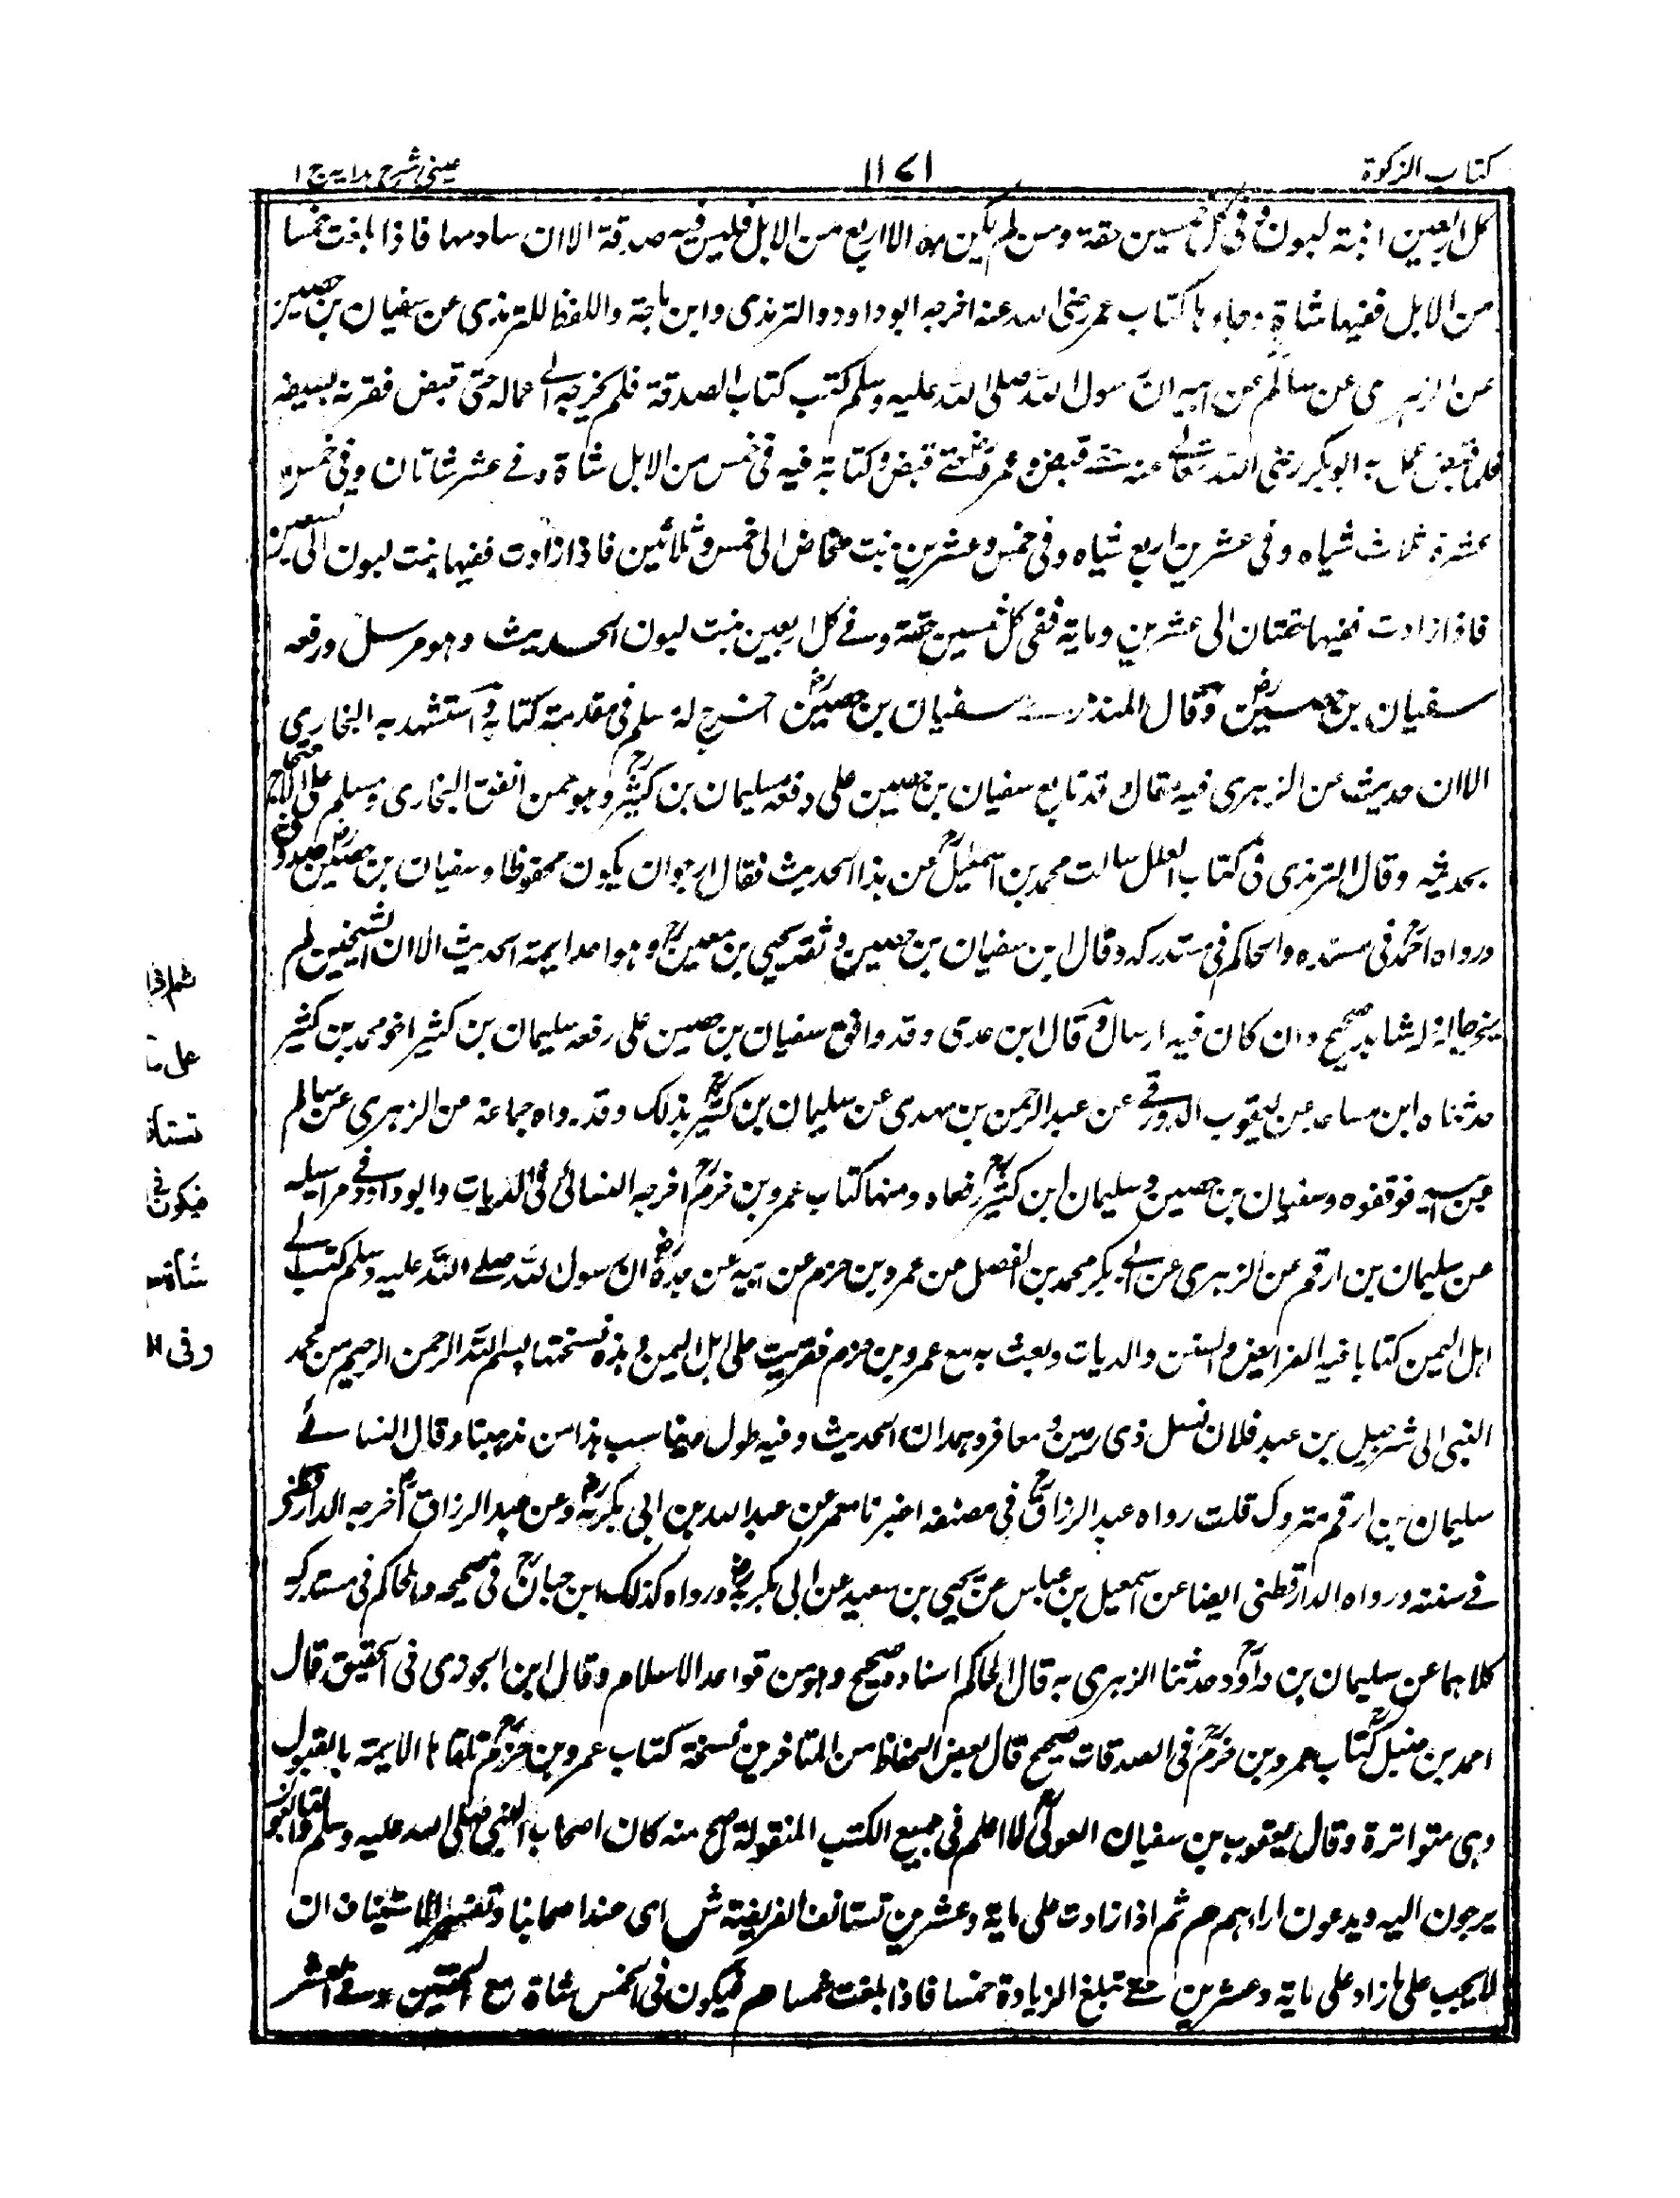 كتاب الزكوة
١١٧١
عينى شرح هدايہ ج ١
كل اربعين ابنة لبون وفى كل خمسين حقة ومن لم يكن معه الا اربع من الابل فليس فيه صدقة الا ان يشاء ربها فاذا بلغت خمسا
من الابل ففيها شاة وجاء بها كتاب عمر رضى الله عنه اخرجه ابو داود والترمذى وابن ماجة واللفظ للترمذى عن سفيان بن حصين
عن الزهرى عن سالم عن ابيه ان رسول الله صلى الله عليه وسلم كتب كتاب الصدقة فلم يخرجه الے عماله حتى قبض فقرنه بسيفه
فلما قبض عمل به ابوبكر رضى الله تعالے عنه حتے قبض وعمر رض حتے قبض وكتابه فيه فى خمس من الابل شاة وفے عشر شاتان وفى خمس
عشرة ثلاث شياه وفى عشرين اربع شياه وفى خمس وعشرين بنت مخاض الى خمس وثلاثين فاذا زادت ففيها بنت لبون الى تسعين
فاذا زادت ففيها حقتان الى عشرين وماية ففى كل خمسين حقة وفے كل اربعين بنت لبون الحديث وهو مرسل ورفعه
سفيان بن حصين رض وقال المنذرے سفيان بن حصين رض اخرج له مسلم فى مقدمة كتابه واستشهد به البخارى
الا ان حديثه عن الزهرى فيه مقال وقد تابع سفيان بن حصين على رفعه سليمان بن كثير رح وهو ممن اتفق البخارى ومسلم على الاحتجاج
بحديثه وقال الترمذى فى كتاب العلل سالت محمد بن اسمعيل رح عن هذا الحديث فقال ارجو ان يكون محفوظا وسفيان بن حصين رض صدوق
ورواه احمد فى مسنده والحاكم فى مستدركه وقال ابن سفيان بن حصين وثقه يحيى بن معين رح وهو احد ايمة الحديث الا ان الشيخين لم
يخرجا له شاهد صحيح وان كان فيه ارسال وقال ابن عدى وقد وافق سفيان بن حصين على رفعه سليمان بن كثير اخو محمد بن كثير
حدثناه ابن صاعد عن يعقوب الدورقے عن عبد الرحمن بن مهدى عن سليمان بن كثير رح بذلك وقد رواه جماعة من الزهرى عن سالم
عن ابيه فوقفوه وسفيان بن حصين وسليمان ابن كثير رح رفعاه ومنها كتاب عمرو بن حزم رح اخرجه النسائى فى الديات وابو داود فے مراسيله
عن سليمان بن ارقم عن الزهرى عن ابے بكر محمد بن الفصل من عمرو بن حزم عن ابيه عن جده رض ان رسول الله صلے الله عليه وسلم كتب الے
اهل اليمن كتابا فيه الفرايض والسنن والديات وبعث به مع عمرو بن حزم فقريت على اهل اليمن وهذه نسختها بسم الله الرحمن الرحيم من محمد
النبى الى شرحبيل بن عبد فلان نسل ذى رعين ومعافر وهمدان الحديث وفيه طول فيما سبب هذا من مذهبنا وقال النسائے
سليمان بن ارقم متروك قلت رواه عبد الرزاق رح فى مصنفه اخبرنا معمر عن عبد الله بن ابى بكر به رض ومن عبد الرزاق رح اخرجه الدارقطنى
فے سننه ورواه الدارقطنى ايضا عن اسمعيل بن عباس عن يحيى بن سعيد عن ابى بكر به رض ورواه كذلك ابن حبان رح فى صحيحه والحاكم فى مستدركه
كلاهما عن سليمان بن داود رح حدثنا الزهرى به قال الحاكم اسناده صحيح وهو من قواعد الاسلام وقال ابن الجوزى فى التحقيق قال
احمد بن حنبل رح كتاب عمرو بن حزم رح فى الصدقات صحيح قال بعض الحفاظ من المتاخرين نسخة كتاب عمرو بن حزم رح تلقاها الايمة بالقبول
وهى متواترة وقال يعقوب بن سفيان الفوكى لا اعلم فى جميع الكتب المنقولة اصح منه كان اصحاب النبى صلى الله عليه وسلم والتابعون
يرجون اليه ويدعون اراهم هم ثم اذا زادت على ماية وعشرين تستانف الفريضة ش اى عند اصحابنا وتفسير الاستيناف ان
لا يجب على ما زاد على ماية وعشرين حتے تبلغ الزيادة خمسا فاذا بلغت خمسا م فيكون فى الخمس شاة مع الحقتين وفے العشر
ثم اذا
على
تستا
فيكون
شاة
وفى